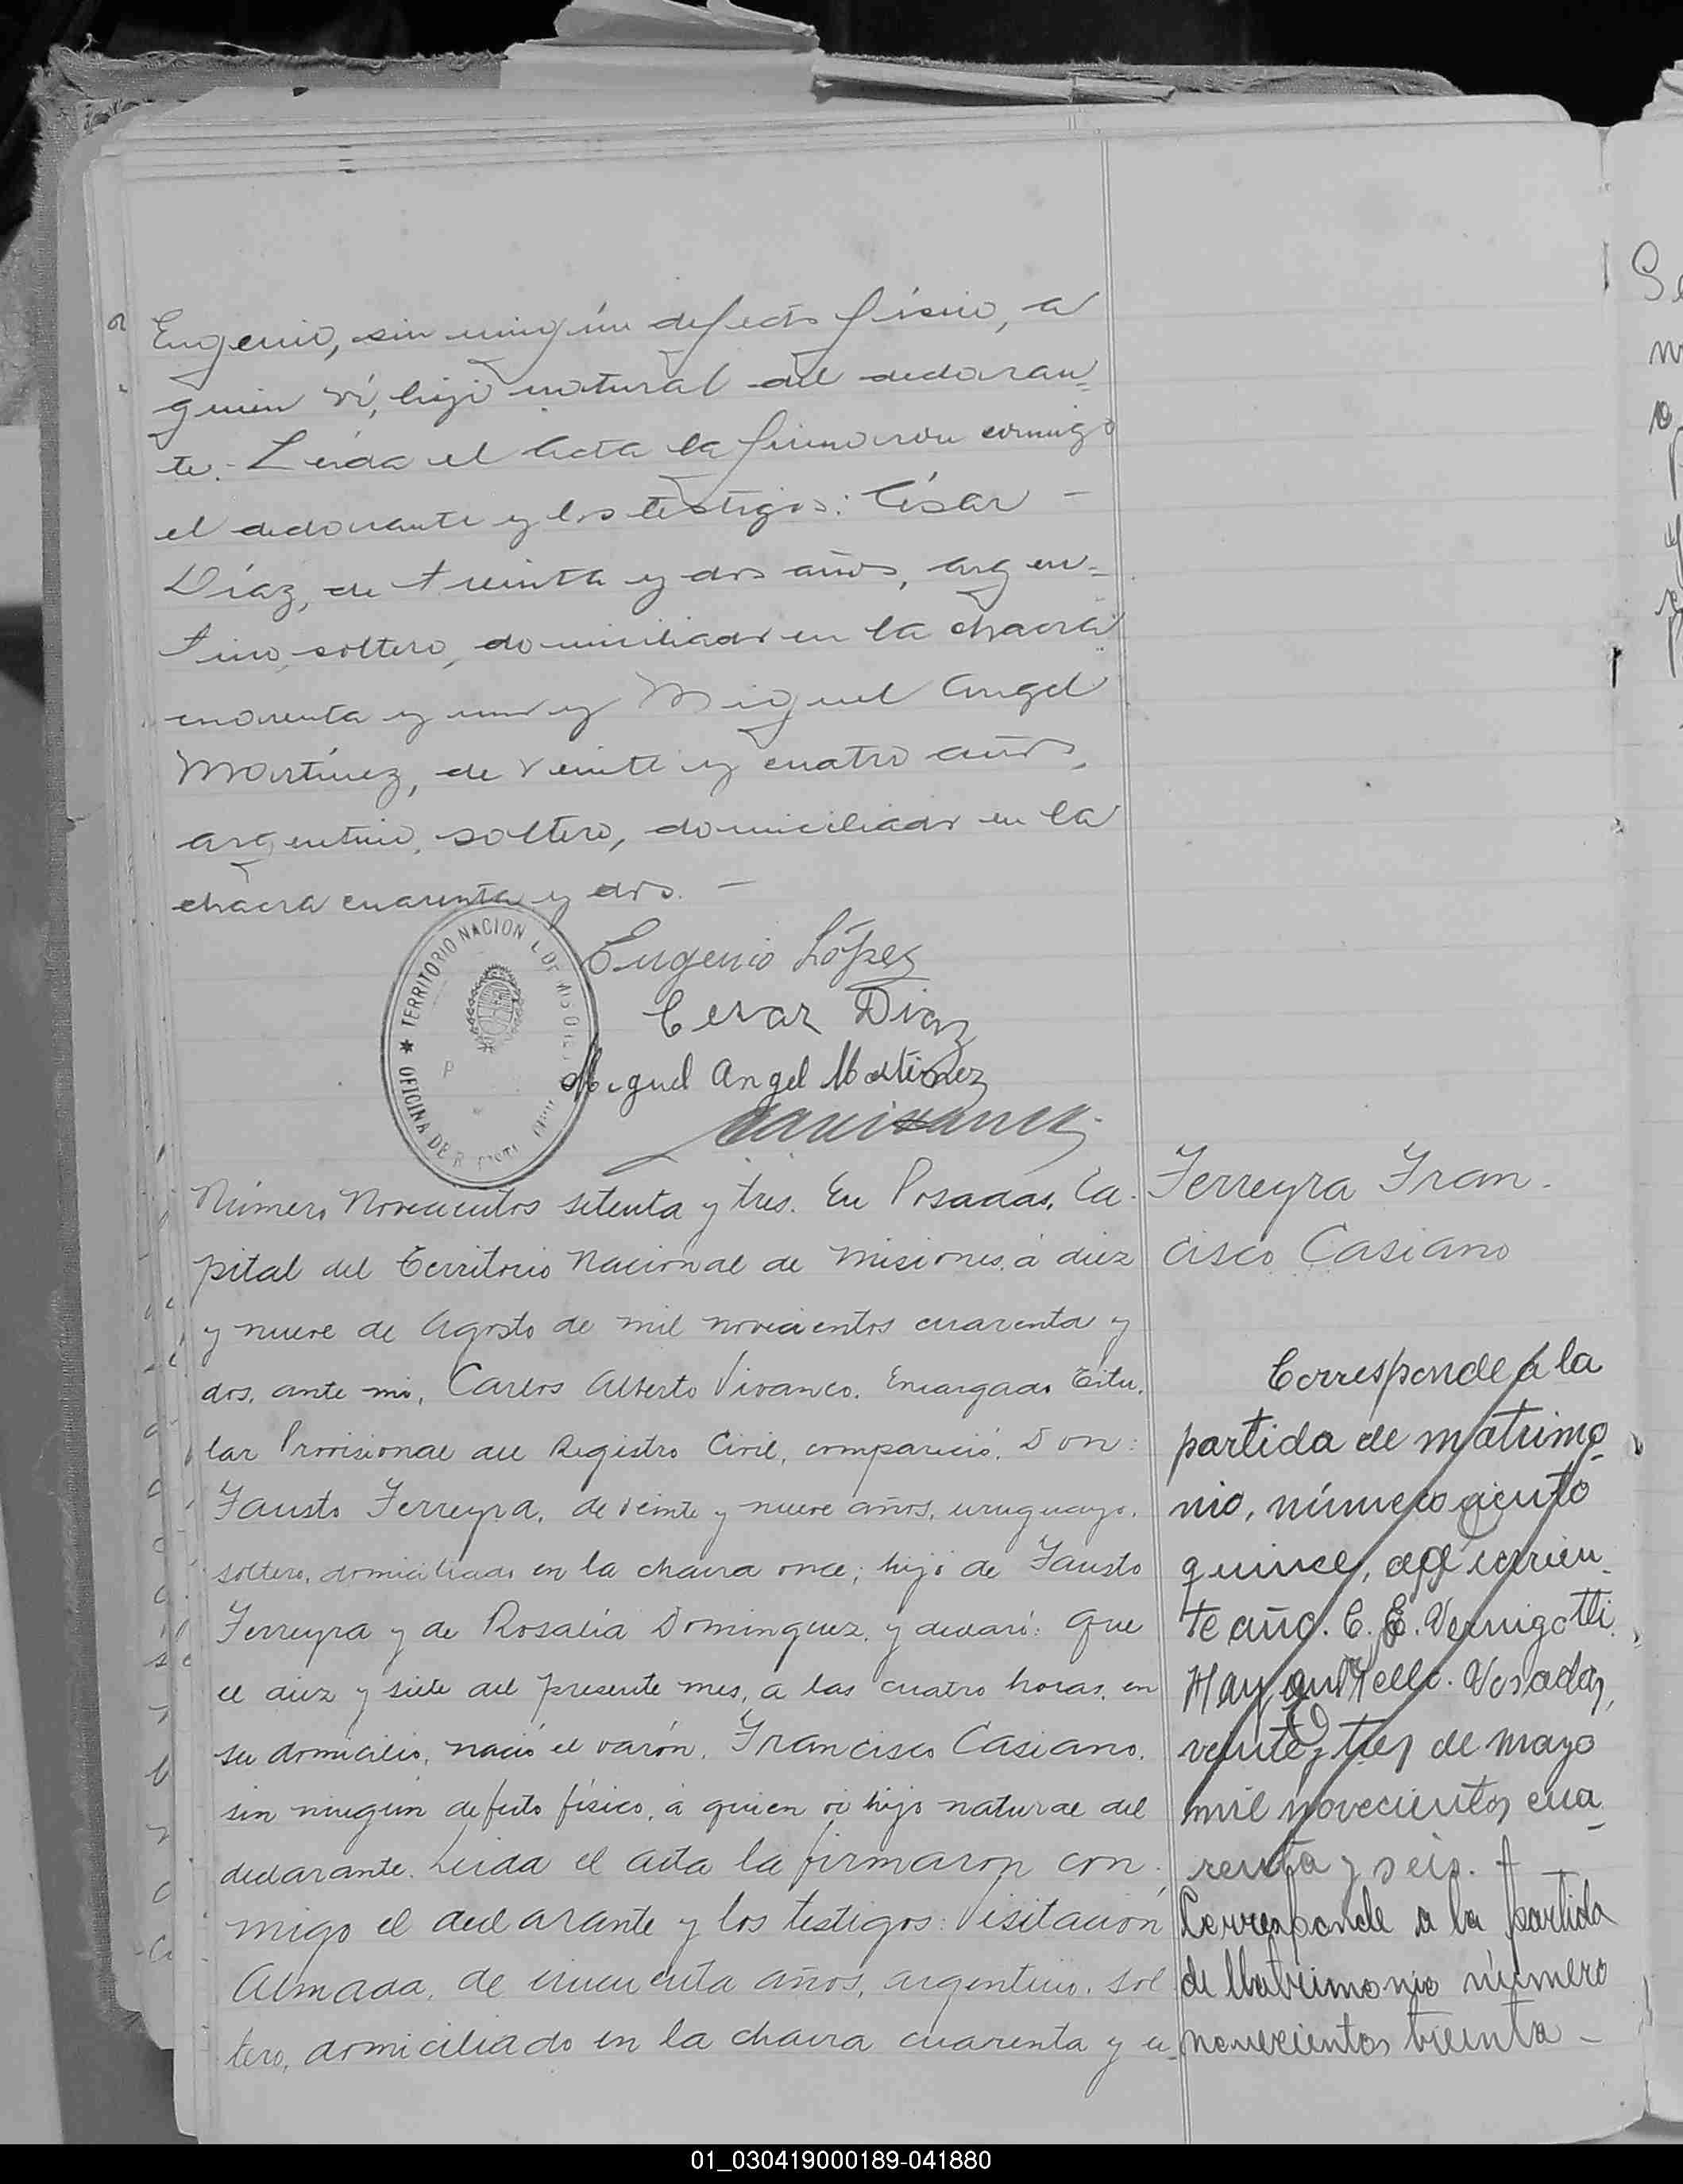 Eugenio, sin ningún defecto físico, a
quien ví, hijo natural del declaran=
te.- Leida el Acta la firmaron conmigo
el declarante y los testigos: César -
Díaz, de treinta y dos años, argen=
tino, soltero, domiciliado en la chacra
cuarenta y uno y Miguel Angel
Martínez, de veinte y cuatro años,
argentino, soltero, domiciliado en la
chacra cuarenta y dos. -
TERRITORIO NACION L DE
OFICINA DE
Eugenio López
Cesar Diaz
Miguel Angel Martinez
Número Novecientos setenta y tres. En Posadas, Ca-
pital del Territorio Nacional de Misiones, á diez
y nueve de Agosto de mil novecientos cuarenta y
dos, ante mi, Carlos Alberto Vivanco. Encargado Titu-
lar Provisional del Registro Civil, compareció, Don:
Fausto Ferreyra, de veinte y nueve años, uruguayo,
soltero, domiciliado en la chacra once; hijo de Fausto
Ferreyra y de Rosalía Dominguez, y declaró: Que
el diez y siete del presente mes, a las cuatro horas, en
su domicilio, nació el varón, Francisco Casiano,
sin ningún defecto físico, á quien ví hijo natural del
declarante. Leida el acta la firmaron con-
migo el declarante y los testigos: Visitación
Almada, de cincuenta años, argentino, sol
tero, domiciliado en la chacra cuarenta y u-
Ferreyra Fran-
cisco Casiano
Corresponde a la
partida de matrimo-
nio, número ciento
quince, del corrien-
te año. C. E. Vernigotti.
Hay un sello. Posadas,
veinte y tres de mayo
mil novecientos cua-
renta y seis. -
Corresponde a la partida
de Matrimonio número
novecientos treinta -
01_030419000189-041880